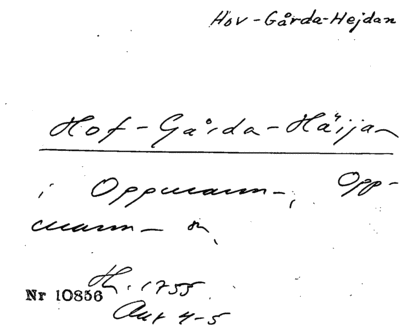 Hov-Gårda-Hejdan
Hof-Gårda-Häijan
i Oppmanna, Opp-
manna sn,
Hh. 1755
Nr 10856
Akt 4-5